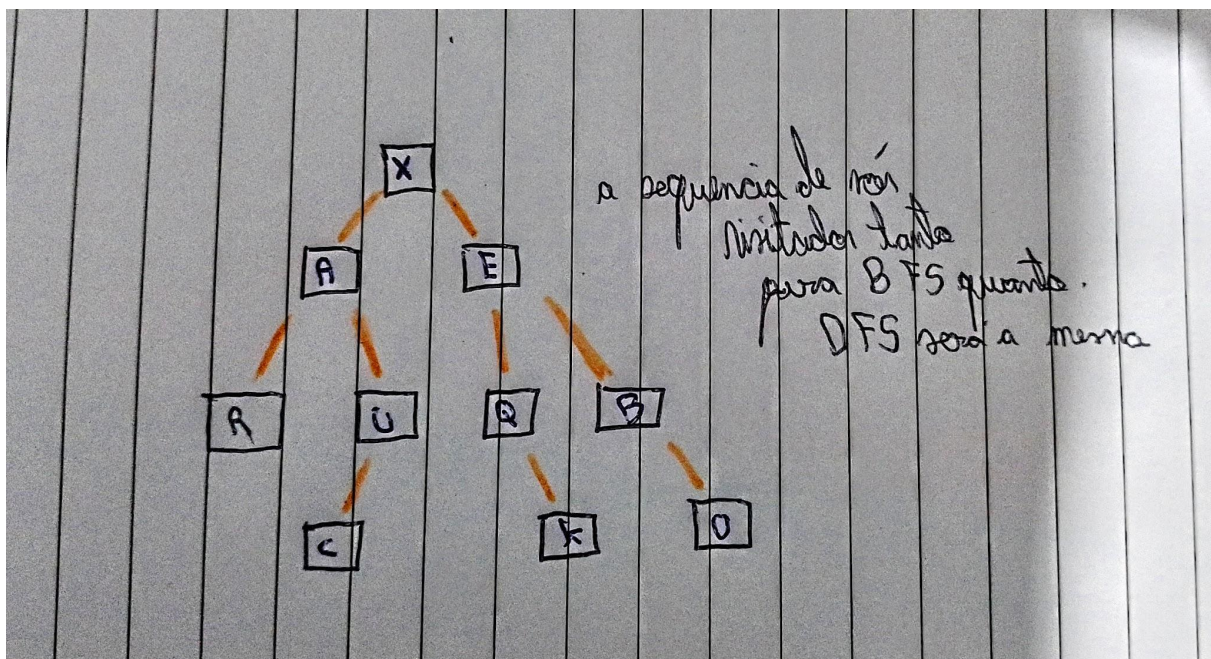 X
A E
R U Q B
C K O
a sequencia de nós
visitados tanto
para BFS quanto.
DFS será a mesma